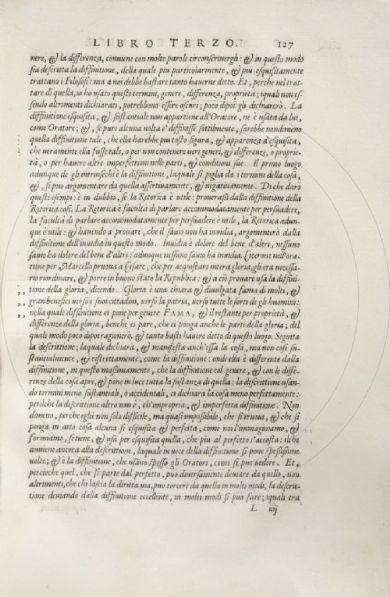 LIBRO TERZO. 127
nere, & la differenza, conviene con molte parole circonscriverglo: & in questo modo
sia descritta la diffinitione, della quale piu particolarmente, & piu esquisitamente
trattano i Filosofi: ma a noi debbe bastare tanto haverne detto. Et, perche nel trat-
tare di quella, io ho usato questi termini, genere, differenza, proprietà; iquali non es-
sendo altrimenti dichiarati, potrebbono essere oscuri; poco dipoi gli dichiarerò. La
diffinitione esquisita, & sustantiale non appartiene all'Oratore, ne è usata da lui,
come Oratore; &, se pure alcuna volta e' diffinisse sottilmente, sarebbe nondimeno
quella diffinitione tale, che ella harebbe piu tosto figura, & apparenza d'esquisita,
che veramente la fusse tale, o per non contenere veri generi, & differenze, o proprie-
tà, o per havere altre imperfettioni nelle parti, & conditioni sue. Il primo luogo
adunque de gli intrinsechi è la diffinitione, laquale si piglia da i termini della cosa,
&, si puo argumentare da quella assertivamente, & negativamente. Di che darò
questi esempi: è in dubbio, se la Retorica è utile: provorassi dalla diffinitione della
Retorica cosi. La Retorica è facultà di parlare accommodatamente per persuadere,
la facultà di parlare accommodatamente per persuadere è utile, la Retorica adun-
que è utile: & havendo a provare, che il savio non ha invidia, argomenterò dalla
diffinitione dell'invidia in questo modo. Invidia è dolore del bene d'altri, nessuno
savio ha dolore del bene d'altri; adunque nessuno savio ha invidia. Cicerone nell'ora-
tione per Marcello pruova a Cesare, che per acquistare intera gloria, gli era necessa-
rio riordinare, & porre in buono stato la Republica: & a ciò provare usa la diffini-
tione della gloria, dicendo. Gloria è una chiara & divulgata fama di molti, &
gran benefici verso i suoi cittadini, verso la patria, verso tutte le sorti de gli huomini:
nella quale diffinitione ei pone per genere FAMA, & il restante per proprietà, &
differenze della gloria, benche ei pare, che ei ponga anche le parti della gloria; del
quale modo poco dipoi ragionerò, & tanto basti havere detto di questo luogo. Seguita
la descrittione; laquale dichiara, & manifesta anch'essa la cosa, ma non cosi su-
stantialmente, & ristrettamente, come la diffinitione: onde ella è differente dalla
diffinitione, in questo massimamente, che la diffinitione col genere, & con le diffe-
renze della cosa apre, & pone in luce tutta la sustanza di quella: la descrittione usan-
do termini meno sustantiali, o accidentali, ci dichiara la cosa meno perfettamente:
perilche la descrittione altro non è, ch'impropria, & imperfetta diffinitione. Non-
dimeno, perche egli non solo difficile, ma quasi impossibile, che si truova, & che si
ponga in atto cosa alcuna si esquisita & perfetta, come noi l'immaginamo, &
formiamo, si tiene, & usa per esquisita quella, che piu al perfetto s'accosta: il che
avviene ancora alla descrittione, laquale in vece della diffinitione si pone spessissime
volte; & è la diffinitione, che usano spesso gli Oratori, come si puo vedere. Et,
percioche quel, che si parte dal perfetto, puo diversamente deviare da quello, non
altrimenti, che chi lascia la diritta via, puo torcere da quella in molti modi, la descrit-
tione deviando dalla diffinitione eccellente, in molti modi si puo fare; iquali tra
L iiij